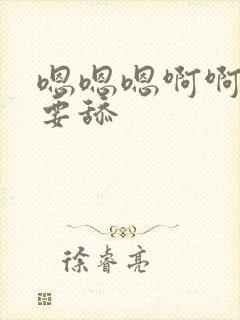 嗯嗯嗯啊啊
要舔
徐睿亮